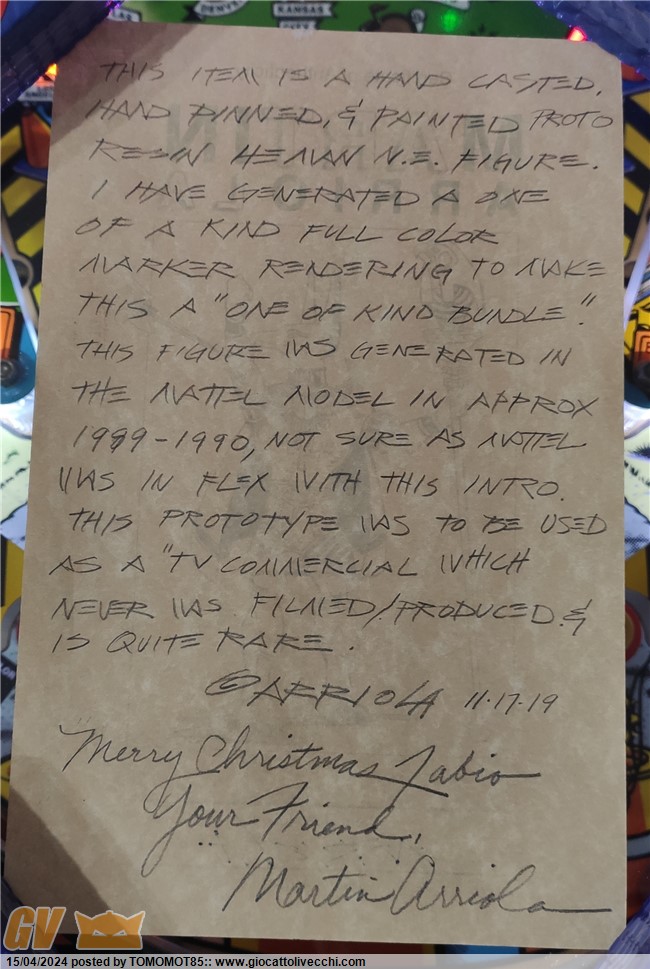 DENVER
KANSAS
CITY
THIS ITEM IS A HAND CASTED,
HAND PINNED, & PAINTED PROTO
RESIN HEMAN N.E. FIGURE.
I HAVE GENERATED A ONE
OF A KIND FULL COLOR
MARKER RENDERING TO MAKE
THIS A "ONE OF KIND BUNDLE".
THIS FIGURE WAS GENERATED IN
THE MATTEL MODEL IN APPROX
1989-1990, NOT SURE AS MATTEL
WAS IN FLEX WITH THIS INTRO.
THIS PROTOTYPE WAS TO BE USED
AS A "TV COMMERCIAL WHICH
NEVER WAS FILMED/PRODUCED &
IS QUITE RARE.
©ARRIOLA 11·17·19
Merry Christmas Fabio
Your Friend,
Martin Arriola
GV
15/04/2024 posted by TOMOMOT85:: www.giocattolivecchi.com